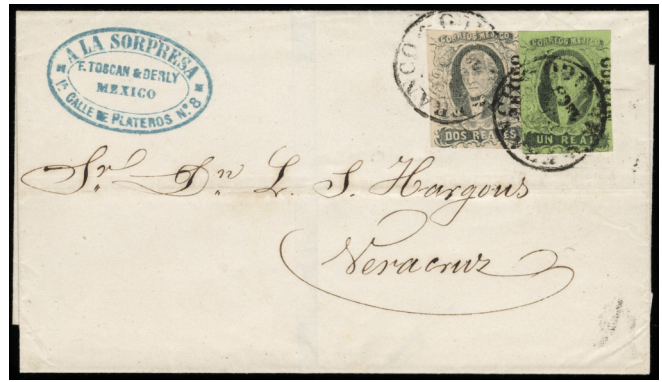 A LA SORPRESA
F. TOSCAN & DERLY
MEXICO
1ª CALLE DE PLATEROS Nº 8
FRANCO
CORREOS MEXICO
DOS REALES
CORREOS MEXICO
MEXICO
UN REAL
Sr. Dn. L. S. Hargous
Veracruz